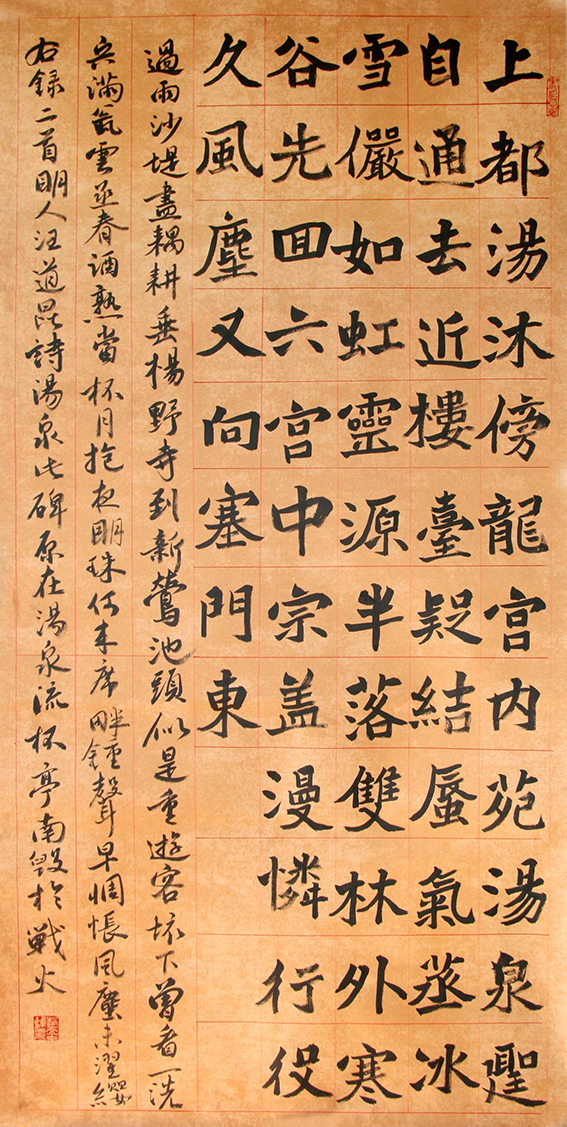 上都湯沐傍龍宮内苑湯泉聖
自通去近樓臺疑結蜃氣蒸冰
雪儼如虹靈源半落雙林外寒
谷先囬六宮中宗盖漫憐行役
久風塵又向塞門東
過雨沙堤盡耦耕垂楊野寺到新鶯池頭似是重遊客垓下曾看一洗
兵滿氣雲蒸春酒熟當杯月抱夜明珠何來席畔鍾聲早惆悵風塵未濯纓
右録二首明人汪道昆詩湯泉此碑原在湯泉流杯亭南毀於戰火